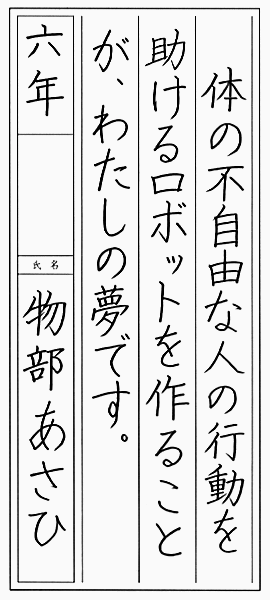 体の不自由な人の行動を
助けるロボットを作ること
が、わたしの夢です。
六年
氏名
物部あさひ